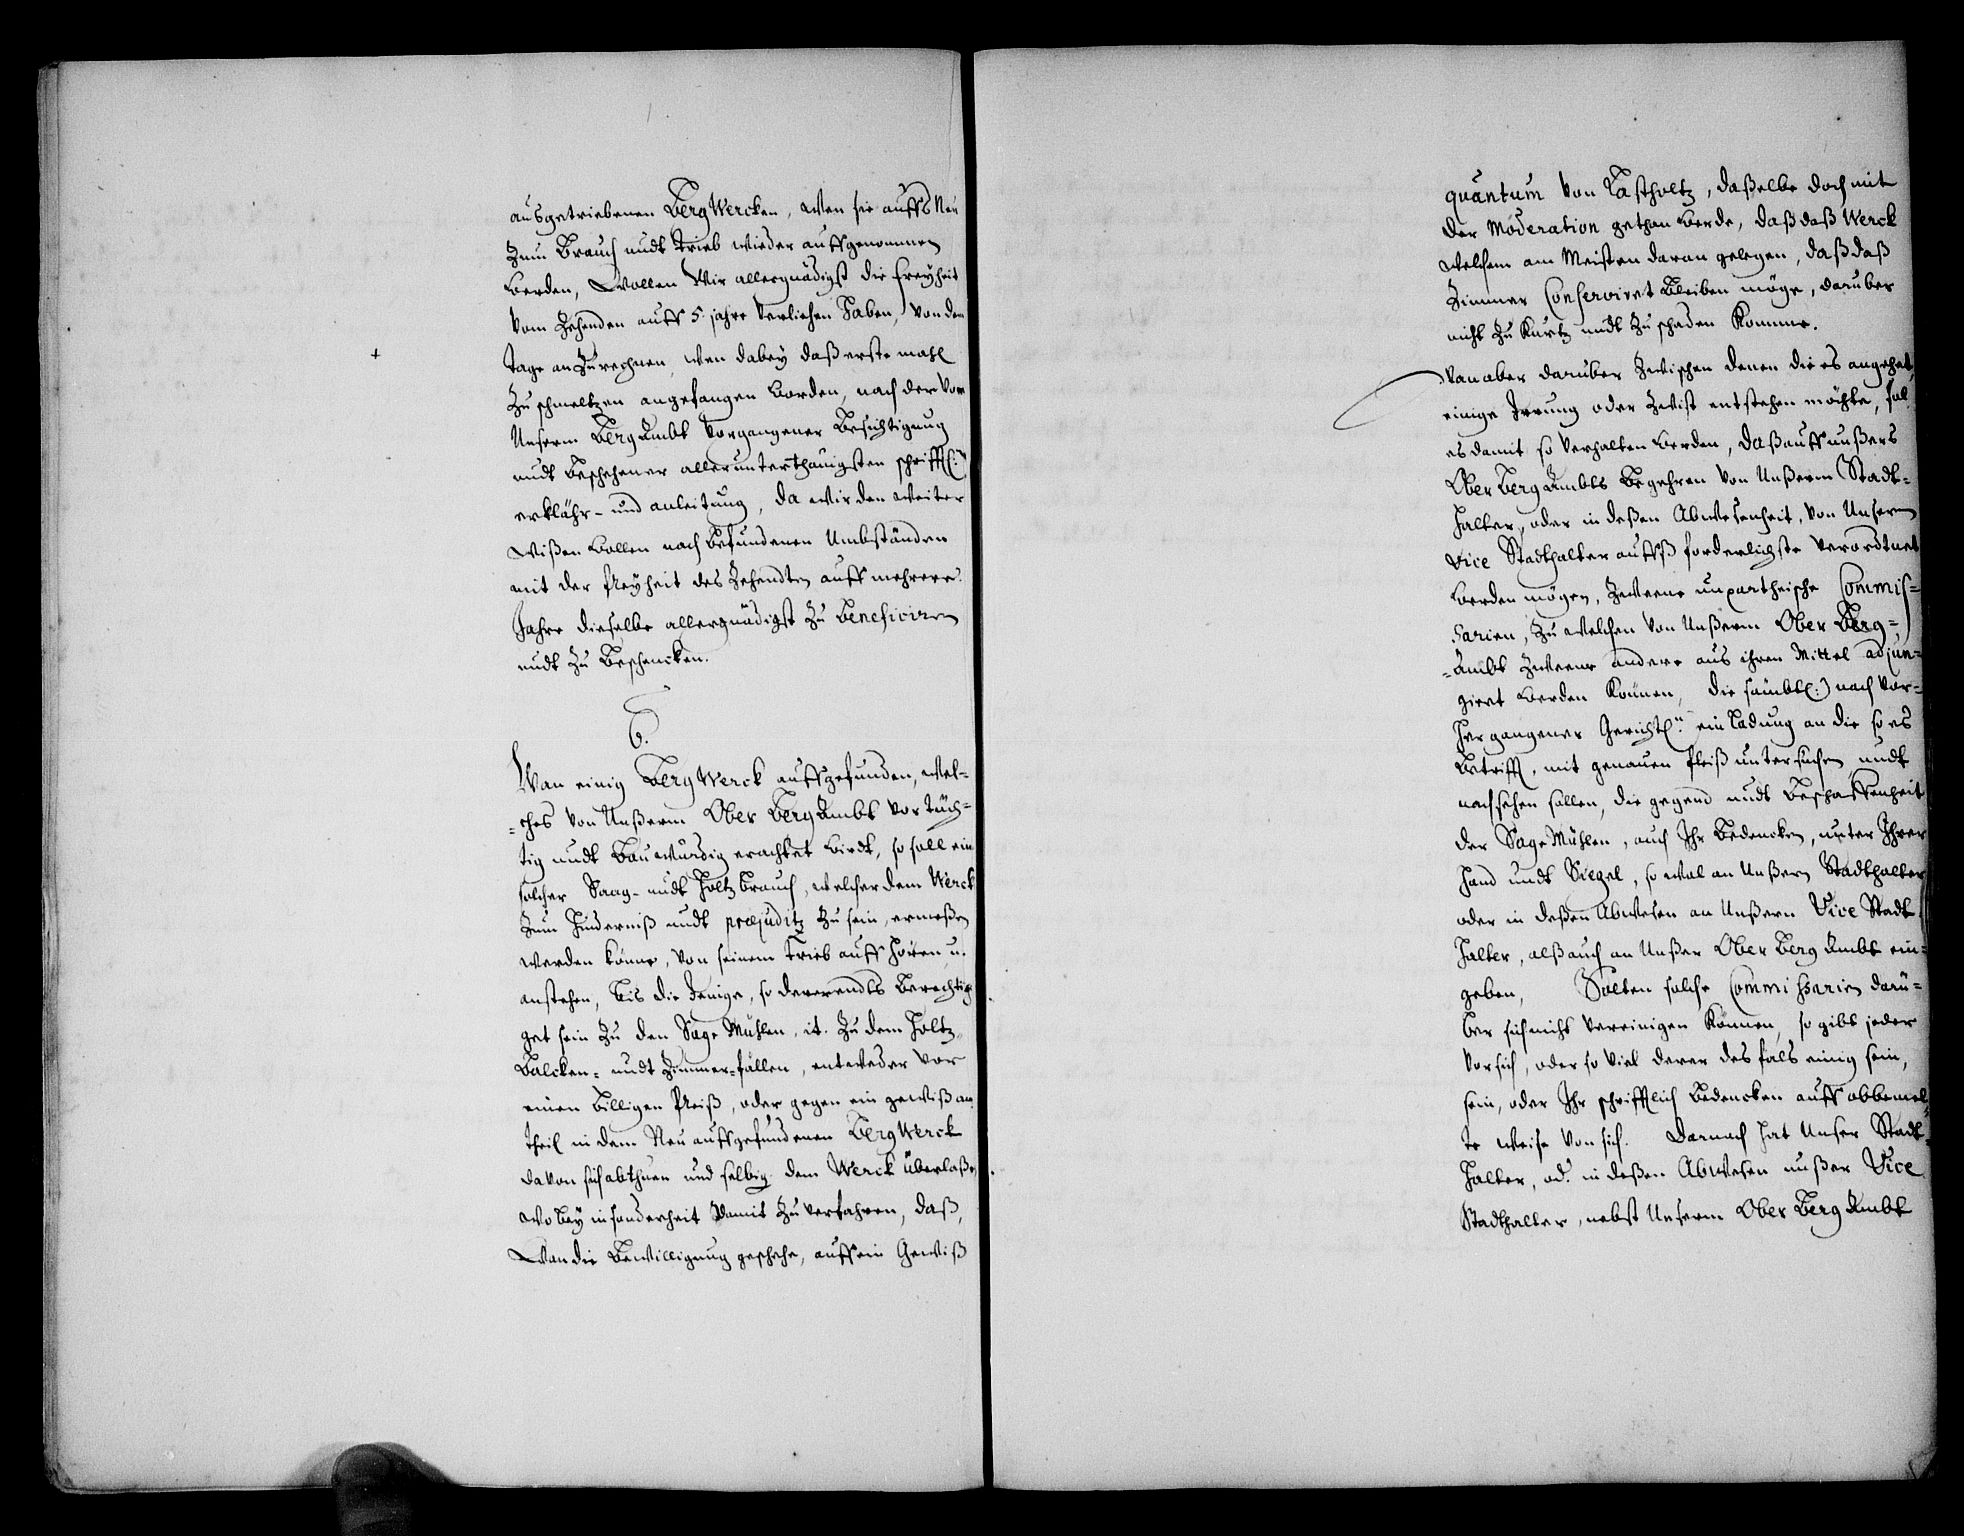 ausgetriebenen BergWercken, wen sie auffs Neu
Zum Brauch undt Trieb wieder auffgenommen
Werden, Wollen Wir allergnädigst die freyheit
Vom Zehenden auff 5. jahre Verliehen haben, Von dem
tage an Zu rechnen, wen dabey daß erste mahl
Zu schmeltzen angefangen Worden, nach der Von
Unserm BergAmbt Vorgangener Besichtigung
undt Beschehener allerunterthänigsten schrifftl:
erklähr- und anleitung, da wir den weiter
Wißen Wollen nach Befundenen Umbständen
mit der freyheit des Zehendten auff mehrere
Jahre dieselbe allergnädigst Zu beneficiren
undt Zu Beschencken.
6.
Wan einig BergWerck auffgefunden, wel-
ches Von Unßerm Ober BergAmbt Vor tüch-
tig undt Bauwürdig erachtet Wirdt, so soll ein
solcher Saag- undt Holtz Brauch, welcher dem Werck
Zum Hinderniß undt præjuditz Zu sein, ermeßen
werden könne, Von seinem Trieb auff hören u.
anstehen, bis die Jenige, so dererendts Berechti-
get sein Zu den Sage Mühlen, it. Zu dem Holtz
Balcken- undt Zimmer-fällen, entweder Vor
einen Billigen Preiß, oder gegen ein gewiß an
theil in dem Neu auffgefundenen BergWerck
davon sich abthuen und selbig dem Werck überlaßen
wobey in sonderheit damit Zu verfahren, daß,
Wan die Bewilligung geschehe, auff ein Gewiß
quantum Von Rastholtz, daßelbe doch mit
der Moderation gethan Werde, daß daß Werck
welchem am Meisten daran gelegen, daß daß
Zimmer Conserviret Bleiben möge, darüber
nicht Zu Kurtz undt Zu schaden Komme.
Wan aber darüber Zwischen denen die es angehet,
einige Irrung oder Zwist entstehen möchte, sol
es damit so Verhalten Werden, daß auff unßers
Ober BergAmbts Begehren Von Unßerm Stadt-
halter, oder in deßen Abwesenheit, Von Unserm
Vice Stadthalter auffs forderlichste Verordtnet
Werden mögen, Zweene unpartheische Commis-
sarien, Zu welchen Von Unßerm Ober Berg-
Ambt Zweene andere aus ihren Mittel adjun-
giret Werden Können, die sämbtl: nach Vor-
hergangener Gerichtl. einladung an die so es
Betrifft, mit genauen fleiß untersuchen undt
nachsehen sollen, die gegend undt Beschaffenheit
der Sage Mühlen, auch Ihr Bedencken, unter Ihrer
Hand undt Siegel, so wol an Unßern Stadthalter
oder in deßen Abwesen an Unßern Vice Stadt
halter, alß auch an Unßer Ober Berg Ambt ein-
geben, Solten solche Commissarien darü-
ber sich nicht Vereinigen Können, so gibt jeder
Vor sich, oder so Viel derer des fals einig sein,
sein, oder Ihr schrifftlich Bedencken auff obbemel-
te weise Von sich. Darnach hat Unser Stadt-
halter, od. in deßen Abwesen unßer Vice
Stadthalter, nebst Unserm Ober Berg Ambt